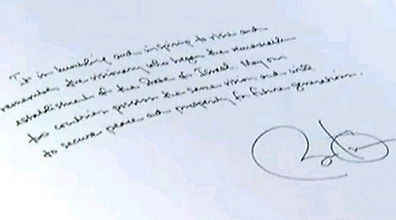 It is humbling and inspiring to visit and
remember the visionary who began the remarkable
establishment of the State of Israel. May our
two countries possess the same vision and will
to secure peace and prosperity for future generations.